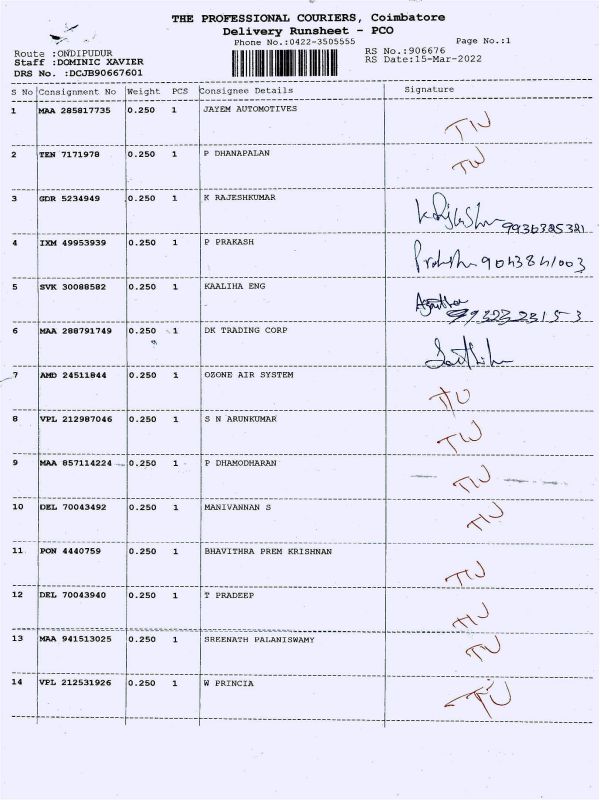 THE PROFESSIONAL COURIERS, Coimbatore
Delivery Runsheet - PCO
Phone No.:0422-3505555 Page No.:1
Route :ONDIPUDUR RS No.:906676
Staff :DOMINIC XAVIER RS Date:15-Mar-2022
DRS No. :DCJB90667601
S No Consignment No Weight PCS Consignee Details Signature
1 MAA 285817735 0.250 1 JAYEM AUTOMOTIVES TIU
2 TEN 7171978 0.250 1 P DHANAPALAN TIU
3 GDR 5234949 0.250 1 K RAJESHKUMAR 9936385381
4 IXM 49953939 0.250 1 P PRAKASH Prakash 9043841003
5 SVK 30088582 0.250 1 KAALIHA ENG
6 MAA 288791749 0.250 1 DK TRADING CORP
7 AMD 24511844 0.250 1 OZONE AIR SYSTEM TIU
8 VPL 212987046 0.250 1 S N ARUNKUMAR TIU
9 MAA 857114224 0.250 1 P DHAMODHARAN TIU
10 DEL 70043492 0.250 1 MANIVANNAN S TIU
11 PON 4440759 0.250 1 BHAVITHRA PREM KRISHNAN TIU
12 DEL 70043940 0.250 1 T PRADEEP TIU
13 MAA 941513025 0.250 1 SREENATH PALANISWAMY TIU
14 VPL 212531926 0.250 1 W PRINCIA TIU